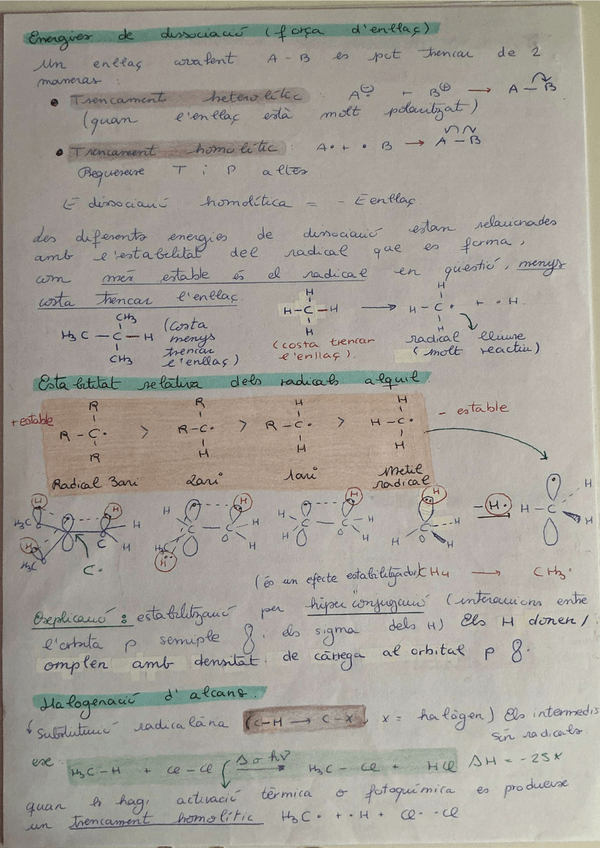 Energies de dissociació (força d'enllaç)
Un enllaç covalent A-B es pot trencar de 2
maneras:
• Trencament heterolític: A⊖ + B⊕ → A-B
(quan l'enllaç està molt polaritzat)
• Trencament homolític: A• + • B → A-B
Requereix T i P altes
E dissociació homolítica = - E enllaç
Les diferents energies de dissociació estan relacionades
amb l'estabilitat del radical que es forma,
com més estable és el radical en questió, menys
costa trencar l'enllaç.
CH3
H3C - C - H
CH3
(costa
menys
trencar
l'enllaç)
H
H-C-H
H
(costa trencar
l'enllaç).
→
H
H-C•
H
+ •H.
radical lliure
(molt reactiu)
Estabilitat relativa dels radicals alquil.
+ estable
R
R-C•
R
>
R
R-C•
H
>
H
R-C•
H
>
H
H-C•
H
- estable
Radical 3ari
2ari
1ari
Metil
radical
H H H3C H3C C H H
C•
H H C C H H H
H C C H H H
H C H H
- H•
H C H H
(És un efecte estabilitzador) CH4 → CH3•
Explicació: estabilització per hiperconjugació (interaccions entre
l'orbita p semiple. els sigma dels H) Els H donen/
omplen amb densitat de càrrega al orbital p.
Halogenació d'alcans.
Substitució radicalària (C-H → C-X, x = halògen) Els intermedis
són radicals.
H3C-H + Cl-Cl Δ o hν → H3C-Cl + HCl ΔH = -25
quan hi hagi activació tèrmica o fotoquímica es produeix
un trencament homolític H3C• + •H + Cl• •Cl